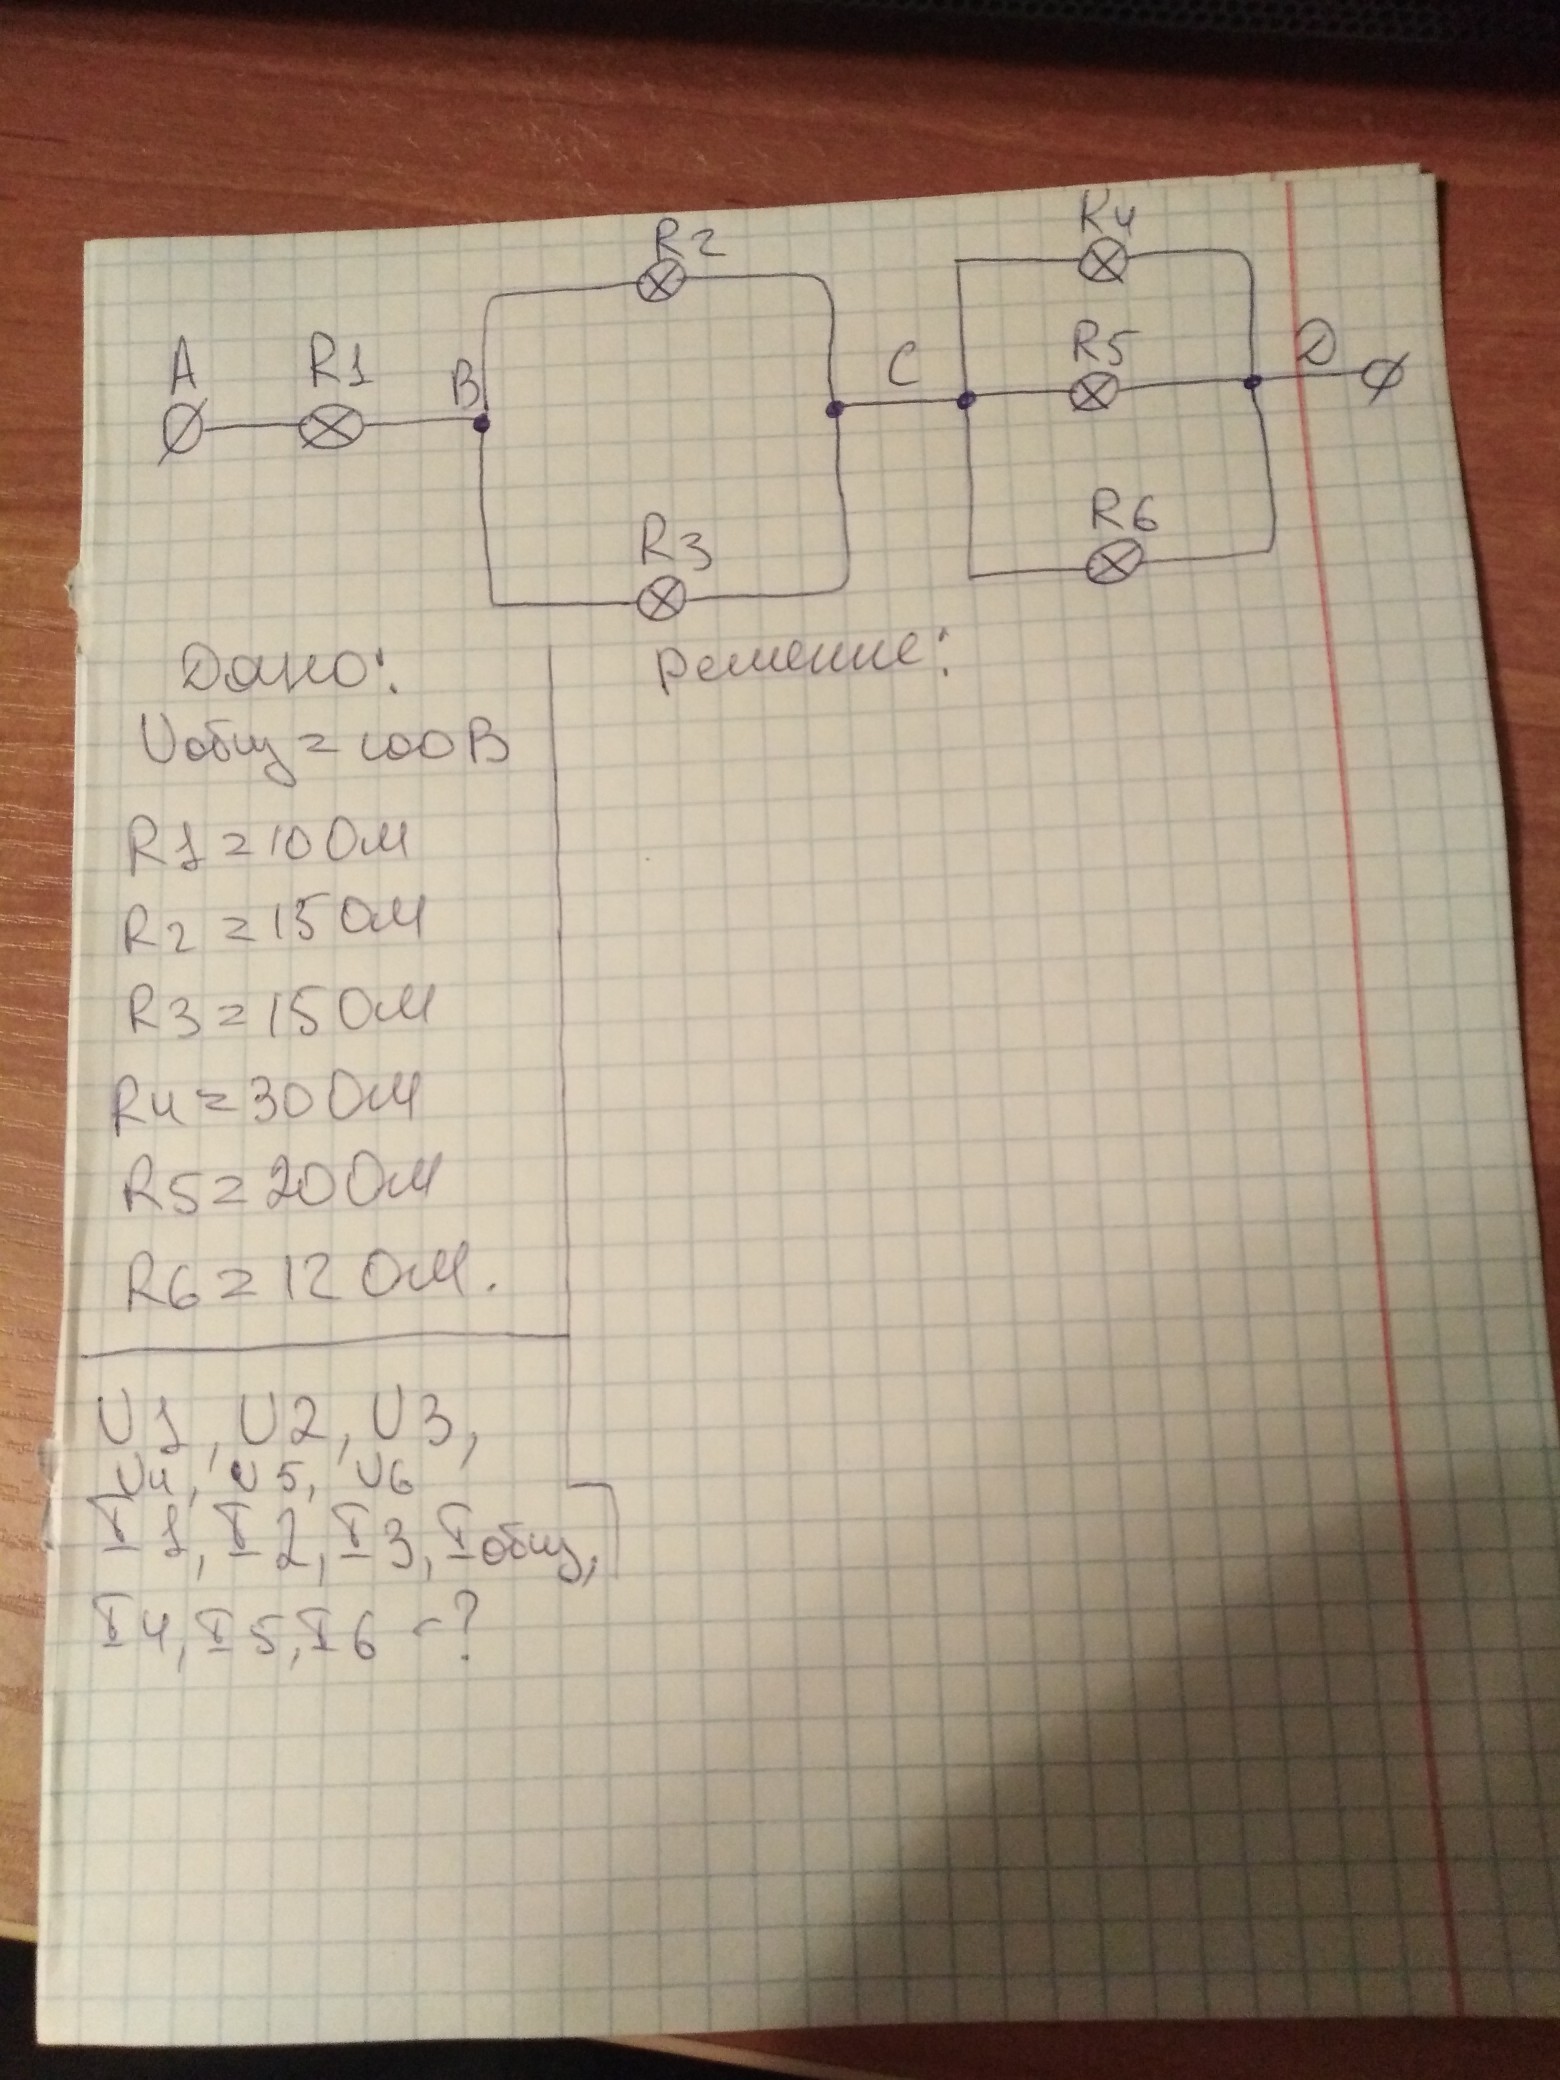 R2
R4
A
R1
B
C
R5
D
R3
R6
Дано:
Решение:
Uобщ = 100В
R1 = 10 Ом
R2 = 15 Ом
R3 = 15 Ом
R4 = 30 Ом
R5 = 20 Ом
R6 = 12 Ом.
U1, U2, U3,
U4, U5, U6
I1, I2, I3, Iобщ,
I4, I5, I6 - ?